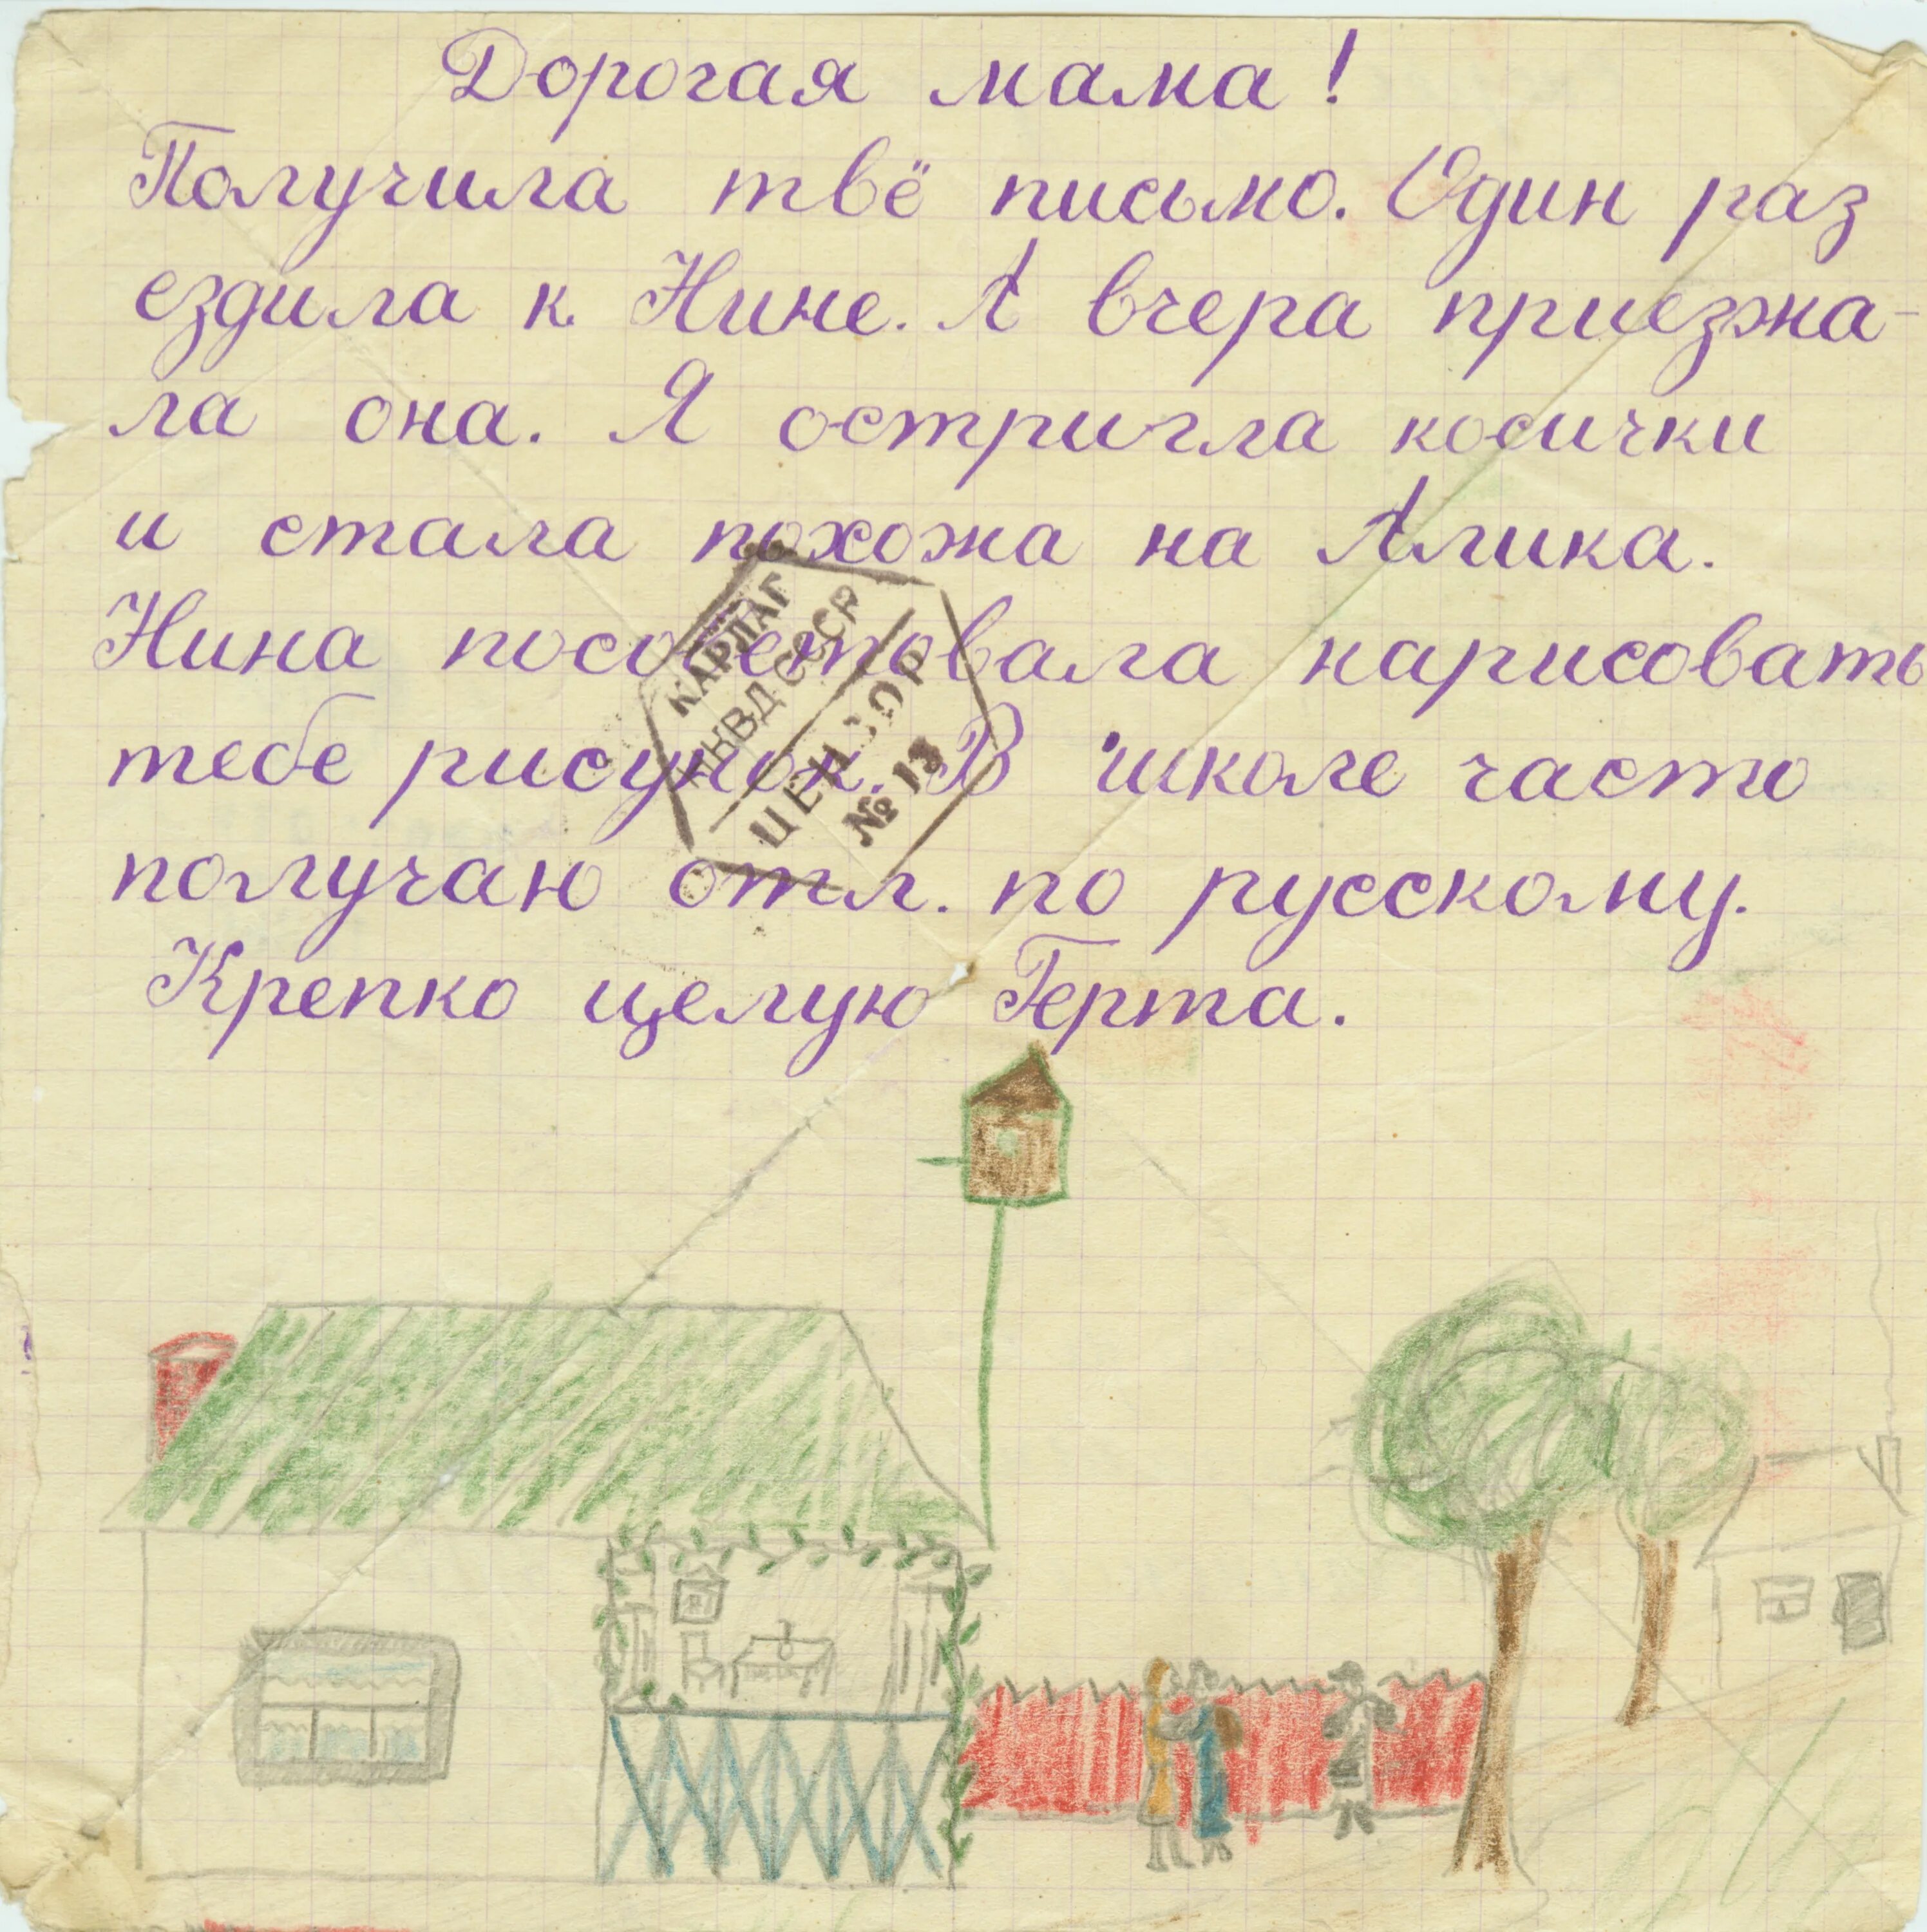 Дорогая мама!
Получила твё письмо. Один раз
ездила к Нине. А вчера приезжа-
ла она. Я остригла косички
и стала похожа на Алика.
Нина посоветовала нарисовать
тебе рисунок. В школе часто
получаю отл. по русскому.
Крепко целую Герта.
КАРЛАГ
НКВД СССР
ЦЕНЗОР
№ 13